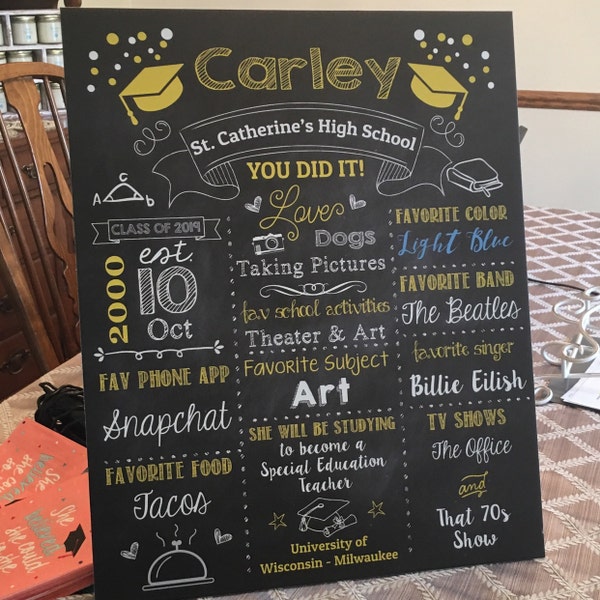 Carley
St. Catherine's High School
YOU DID IT!
A C b
CLASS OF 2019
2000
est.
10
Oct
FAV PHONE APP
Snapchat
FAVORITE FOOD
Tacos
Love
Dogs
Taking Pictures
fav school activities
Theater & Art
Favorite Subject
Art
SHE WILL BE STUDYING
to become a
Special Education
Teacher
University of
Wisconsin - Milwaukee
FAVORITE COLOR
Light Blue
FAVORITE BAND
The Beatles
favorite singer
Billie Eilish
TV SHOWS
The Office
and
That 70s
Show
She
believed
she could
She
believed
she could
so she